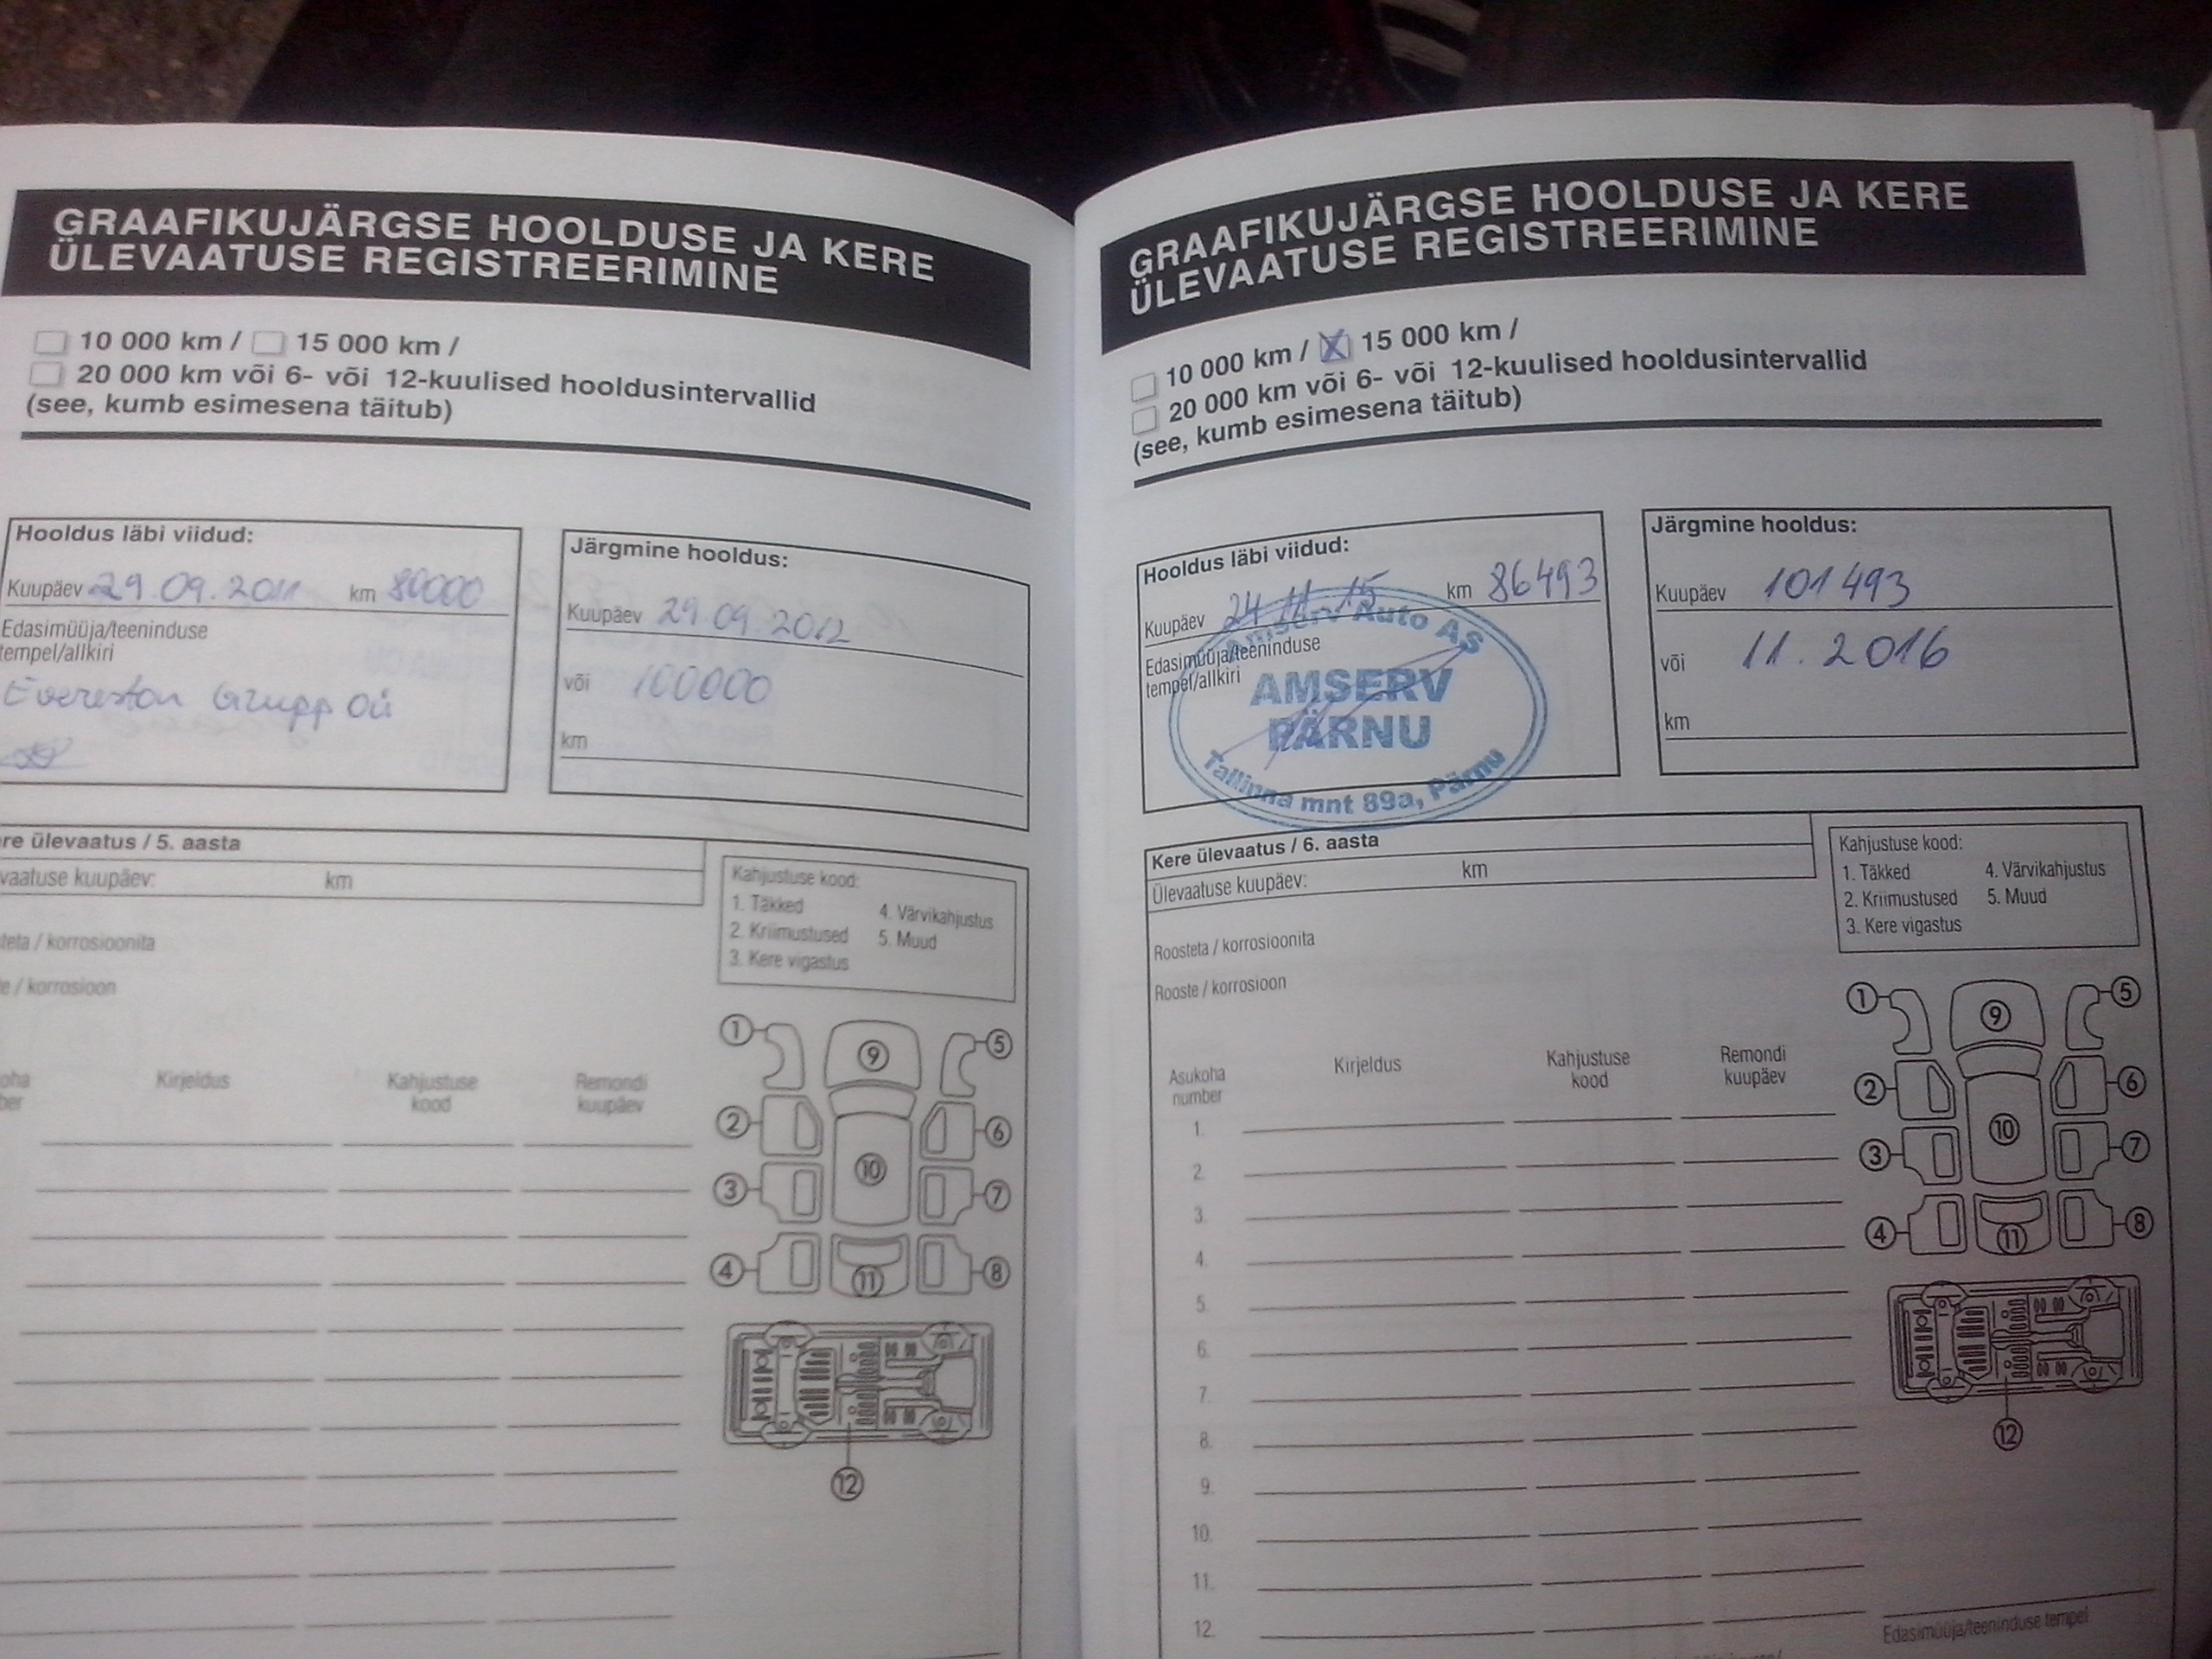 GRAAFIKUJÄRGSE HOOLDUSE JA KERE
ÜLEVAATUSE REGISTREERIMINE
10 000 km / 15 000 km /
20 000 km või 6- või 12-kuulised hooldusintervallid
(see, kumb esimesena täitub)
Hooldus läbi viidud:
Kuupäev 29.09.2011 km 80000
Edasimüüja/teeninduse
tempel/allkiri
Evereston Grupp OÜ
Järgmine hooldus:
Kuupäev 29.09.2012
või 100000
km
re ülevaatus / 5. aasta
vaatuse kuupäev: km
Kahjustuse kood:
1. Täkked 4. Värvikahjustus
2. Kriimustused 5. Muud
3. Kere vigastus
steta / korrosioonita
e / korrosioon
oha
ber
Kirjeldus
Kahjustuse
kood
Remondi
kuupäev
1
2
3
4
5
6
7
8
9
10
11
12
GRAAFIKUJÄRGSE HOOLDUSE JA KERE
ÜLEVAATUSE REGISTREERIMINE
10 000 km / X 15 000 km /
20 000 km või 6- või 12-kuulised hooldusintervallid
(see, kumb esimesena täitub)
Hooldus läbi viidud:
Kuupäev 24.11.15 km 86493
Edasimüüja/teeninduse
tempel/allkiri
Amserv Auto AS
AMSERV
PÄRNU
Tallinna mnt 89a, Pärnu
Järgmine hooldus:
Kuupäev 101493
või 11.2016
km
Kere ülevaatus / 6. aasta
Ülevaatuse kuupäev: km
Kahjustuse kood:
1. Täkked 4. Värvikahjustus
2. Kriimustused 5. Muud
3. Kere vigastus
Roosteta / korrosioonita
Rooste / korrosioon
Asukoha
number
Kirjeldus
Kahjustuse
kood
Remondi
kuupäev
1.
2.
3.
4.
5.
6.
7.
8.
9.
10.
11.
12.
1
2
3
4
5
6
7
8
9
10
11
12
Edasimüüja/teeninduse tempel